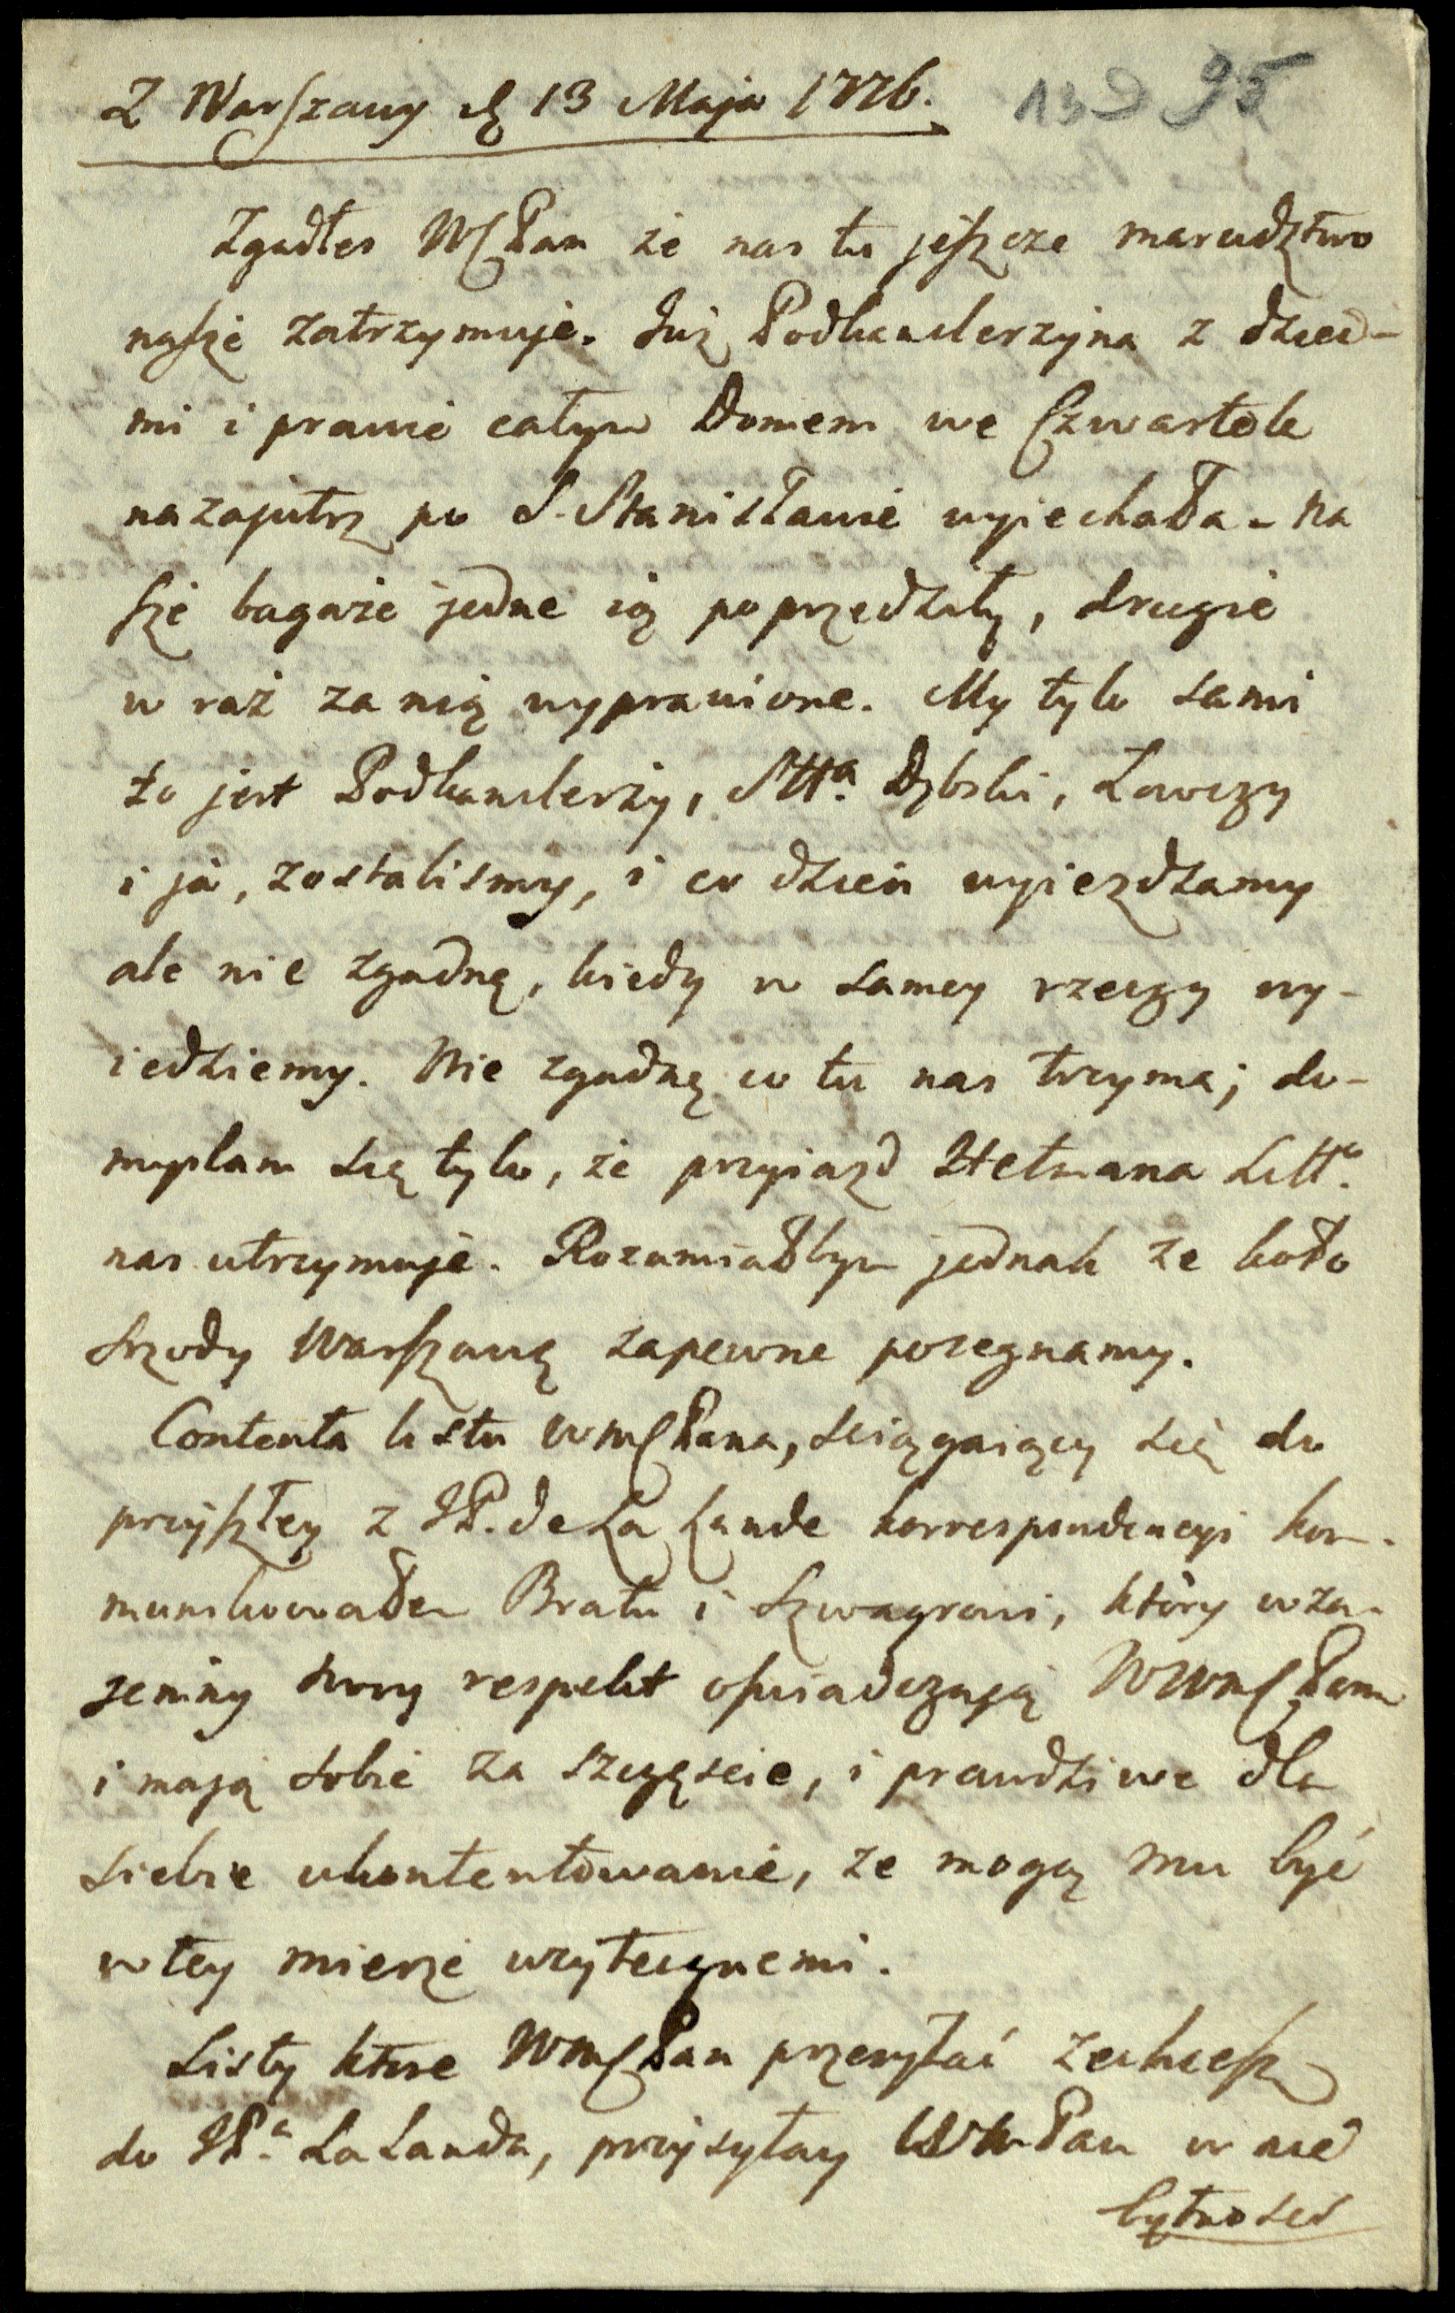 Z Warszawy d 13 Maja 1776. 139 95
Zgadłes WPan że nas tu jeszcze marudztwo
nasze zatrzymuje. Już Podkanclerzyna z dzieć-
mi i prawie całym Domem we Czwartek
nazajutrz po S. Stanisławie wyiechała. na
sze bagaże jedne ią poprzedziły, drugie
w raz za nią wyprawione. My tylo sami
to jest Podkanclerzy, Stta. Dębski, Łowczy
i ja, zostalismy, i co dzień wyiezdzamy
ale nie zgadnę, kiedy w samey rzeczy wy-
iedziemy. Nie zgadnę co tu nas trzyma; do-
myslam się tylo, że przyiazd Hetmana Litt.
nas utrzymuje. Rozumiałbym jednak ze koło
srzody Warszawę zapewne pozegnamy.
Contenta listu WMPana, sciągaiący się do
przyszłey z JP. de La Lande korrespondencyi kom-
munikowałem Bratu i Szwagrowi, który wza-
jemny swoy respekt oswiadczają WWMPanu
i mają sobie za szczęscie, i prawdziwe dla
siebie ukontentowanie, ze mogą mu być
w tey mierze uzytecznemi.
Listy ktore WMPan przesyłać zechcesz
do JPa. La Landa, przysyłay WMPan w nie
bytnosci